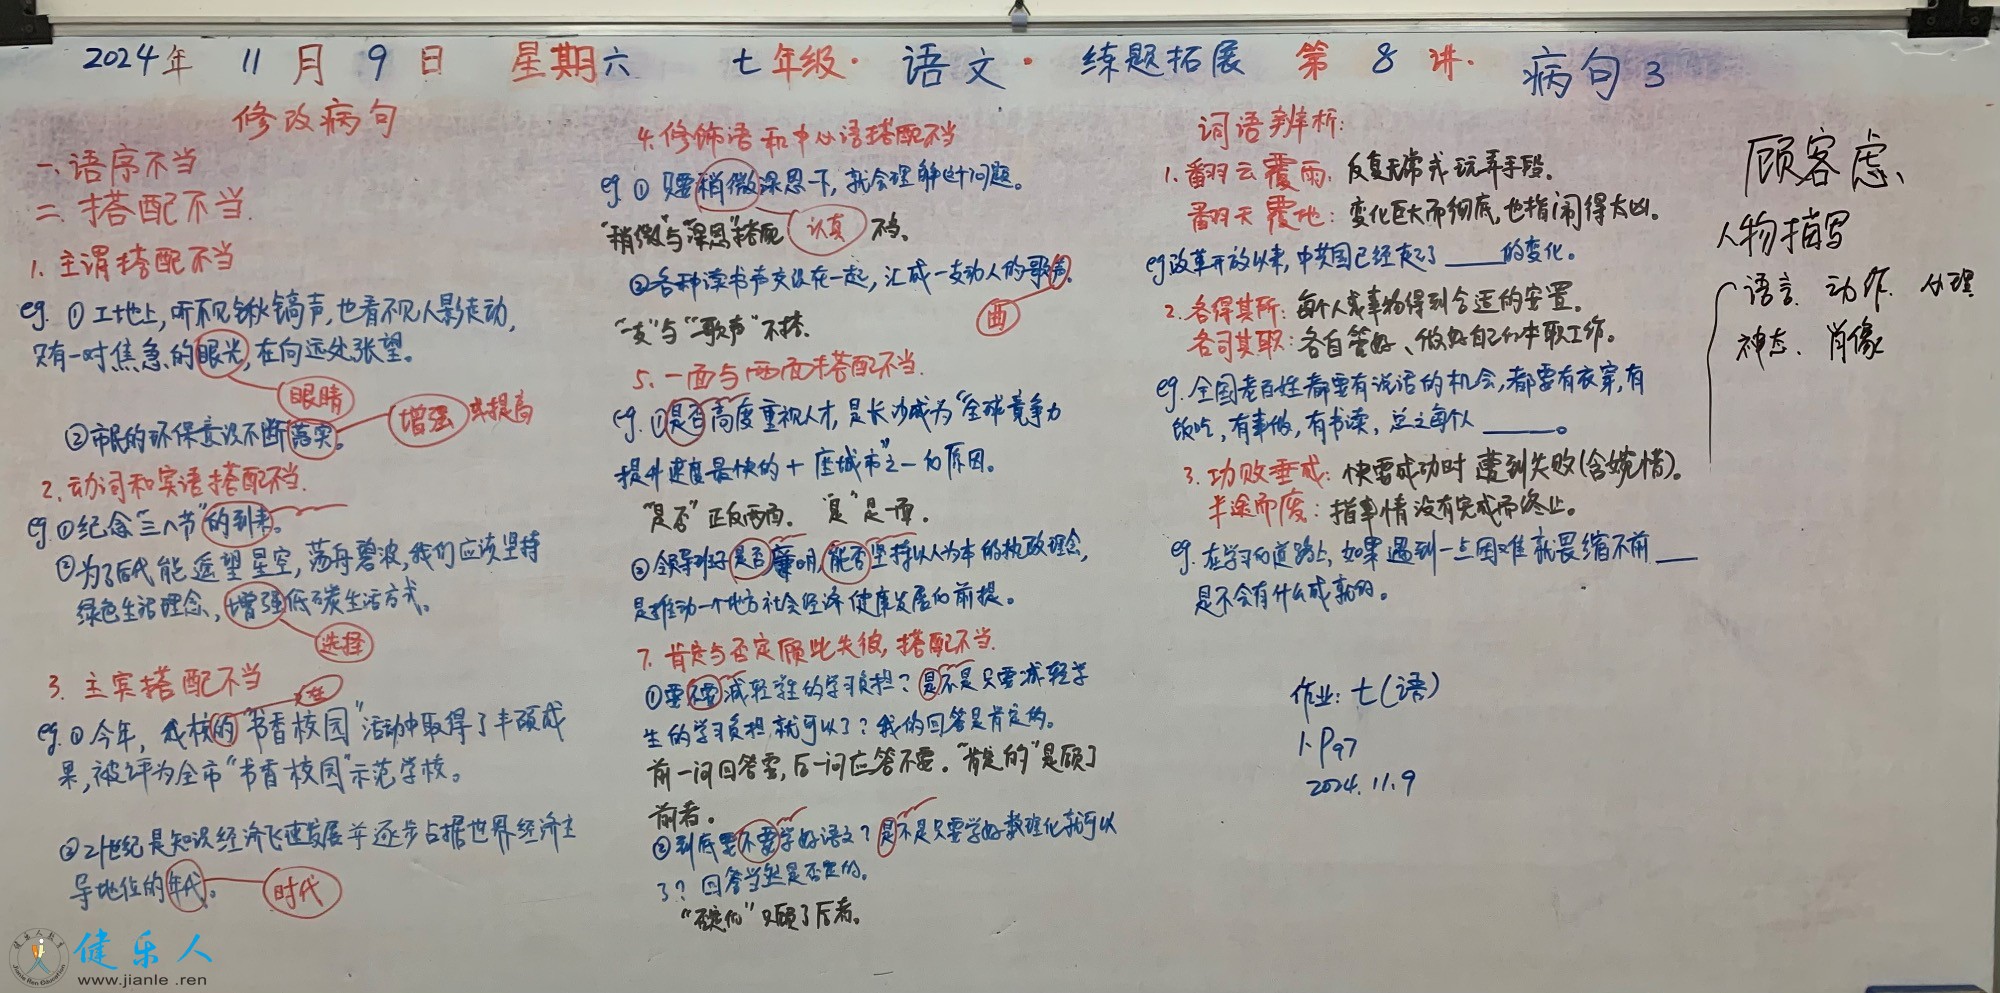 2024年 11月 9日 星期六 七年级·语文·练题拓展 第8讲·病句3
修改病句
一、语序不当
二、搭配不当.
1. 主谓搭配不当
eg. ①工地上,听不见锹镐声,也看不见人影走动,
只有一对焦急的眼光,在向远处张望。
眼睛
②市民的环保意识不断落实。
增强 或提高
2. 动词和宾语搭配不当.
eg ①纪念"三八节"的到来。
②为了后代能遥望星空,荡舟碧波,我们应该坚持
绿色生活理念,增强低碳生活方式。
选择
3. 主宾搭配不当
在
eg. ①今年,我校的"书香校园"活动中取得了丰硕成
果,被评为全市"书香校园"示范学校。
②21世纪是知识经济飞速发展并逐步占据世界经济主
导地位的年代。
时代
4. 修饰语和中心语搭配不当
eg ①只要稍微深思一下,就会理解这个问题。
"稍微"与"深思"搭配不当。
认真
②各种读书声交汇在一起,汇成一支动人的歌声。
曲
"一支"与"歌声"不搭.
5. 一面与两面搭配不当.
eg. ①是否高度重视人才,是长沙成为"全球竞争力
提升速度最快的十座城市"之一的原因。
"是否"正反两面. "是"是一面.
②领导班子是否廉明,能否坚持以人为本的执政理念,
是推动一个地方社会经济健康发展的前提。
7. 肯定与否定顾此失彼,搭配不当.
①要不要减轻学生的学习负担?是不是只要减轻学
生的学习负担就可以了?我的回答是肯定的。
前一问回答要,后一问应答不要。"肯定的"是顾了
前者。
②到底要不要学好语文?是不是只要学好数理化就可以
了?回答当然是否定的。
"否定的"只顾了后者。
词语辨析:
1. 翻云覆雨: 反复无常或玩弄手段.
翻天覆地: 变化巨大而彻底,也指闹得太凶。
eg 改革开放以来,中国已经走了____的变化。
2. 各得其所: 每个人或事物得到合适的安置。
各司其职: 各自管好、做好自己的本职工作。
eg. 全国老百姓都要有说话的机会,都要有衣穿,有
饭吃,有事做,有书读,总之每个人____。
3. 功败垂成: 快要成功时遭到失败(含惋惜)。
半途而废: 指事情没有完成而终止。
eg. 在学习的道路上,如果遇到一点困难就畏缩不前__
是不会有什么成就的。
作业: 七(语)
1. P97
2024.11.9
顾客虑、
人物描写
语言 动作 心理
神态、肖像
健乐人
www.jianle.ren